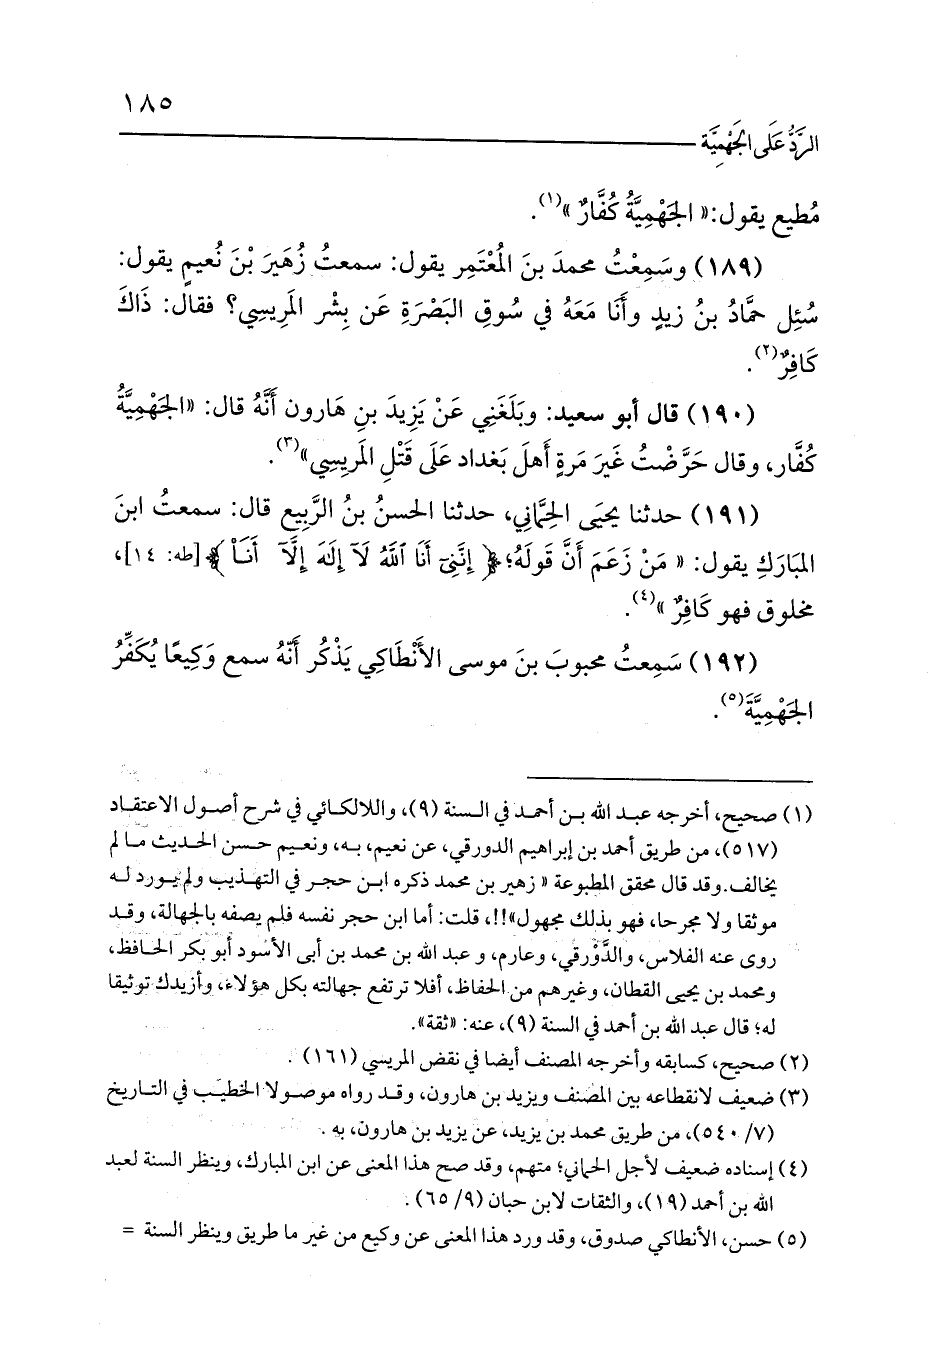 ١٨٥
الرَّدُّ عَلَى الجَهْمِيَّة
مُطيع يقول:« الجَهْمِيَّةُ كُفَّارٌ »(١).
(١٨٩) وسَمِعْتُ محمدَ بنَ المُعْتَمِر يقول: سمعتُ زُهَيَرَ بْنَ نُعيمٍ يقول:
سُئِل حمَّادُ بنُ زيدٍ وأَنَا مَعَهُ في سُوقِ البَصْرَةِ عَن بِشْر المَرِيسِي؟ فقال: ذَاكَ
كَافِرٌ(٢).
(١٩٠) قال أبو سعيد: وبَلَغَنِي عَنْ يَزِيدَ بنِ هَارون أنَّهُ قال: «الجَهْمِيَّةُ
كُفَّار، وقال حَرَّضْتُ غَيرَ مَرةٍ أَهلَ بَغداد عَلَى قَتْلِ المَريسِي»(٣).
(١٩١) حدثنا يحيَى الحِمَّاني، حدثنا الحسنُ بنُ الرَّبيع قال: سمعتُ ابنَ
المبَارَكِ يقول: « مَنْ زَعَمَ أَنَّ قَولَهُ؛﴿ إِنَّنِيٓ أَنَا ٱللَّهُ لَآ إِلَٰهَ إِلَّآ أَنَا۠ ﴾[طه: ١٤]،
مخلوق فهو كَافِرٌ »(٤).
(١٩٢) سَمِعتُ محبوبَ بنَ موسى الأَنْطَاكِي يَذْكُر أنَّهُ سمع وَكِيعًا يُكَفِّرُ
الجَهْمِيَّةَ(٥).
(١) صحيح، أخرجه عبد الله بن أحمد في السنة (٩)، واللالكائي في شرح أصول الاعتقاد
(٥١٧)، من طريق أحمد بن إبراهيم الدورقي، عن نعيم، به، ونعيم حسن الحديث ما لم
يخالف.وقد قال محقق المطبوعة « زهير بن محمد ذكره ابن حجر في التهذيب ولم يورد له
موثقا ولا مجرحا، فهو بذلك مجهول»!!، قلت: أما ابن حجر نفسه فلم يصفه بالجهالة، وقد
روى عنه الفلاس، والدَّوْرقي، وعارم، و عبد الله بن محمد بن أبى الأسود أبو بكر الحافظ،
ومحمد بن يحيى القطان، وغيرهم من الحفاظ، أفلا ترتفع جهالته بكل هؤلاء، وأزيدك توثيقا
له؛ قال عبد الله بن أحمد في السنة (٩)، عنه: «ثقة».
(٢) صحيح، كسابقه وأخرجه المصنف أيضا في نقض المريسي (١٦١) .
(٣) ضعيف لانقطاعه بين المصنف ويزيد بن هارون، وقد رواه موصولا الخطيب في التاريخ
(٧/ ٥٤٠)، من طريق محمد بن يزيد، عن يزيد بن هارون، به .
(٤) إسناده ضعيف لأجل الحماني؛ متهم، وقد صح هذا المعنى عن ابن المبارك، وينظر السنة لعبد
الله بن أحمد (١٩)، والثقات لابن حبان (٩/ ٦٥) .
(٥) حسن، الأنطاكي صدوق، وقد ورد هذا المعنى عن وكيع من غير ما طريق وينظر السنة =